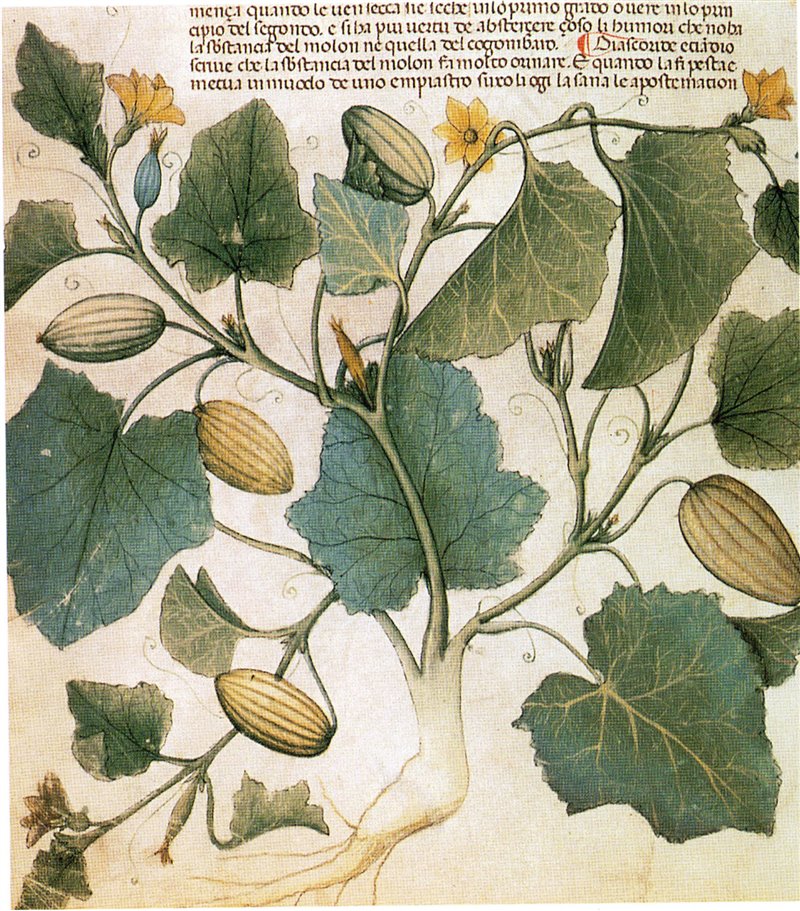 mença quando le uen secca ne leche in lo primo grado ouere in lo prin
cipio del segondo, e si ha piu uertu de abstergere çoso li humori che no ha
la sostancia del molon ne quella del cogombaro. Diascoride eciādio
scriue che la sostancia del molon fa molto orinare. E quando la fi pesta e
metua in muodo de uno empiastro suxo li ogi la sana le apostemation